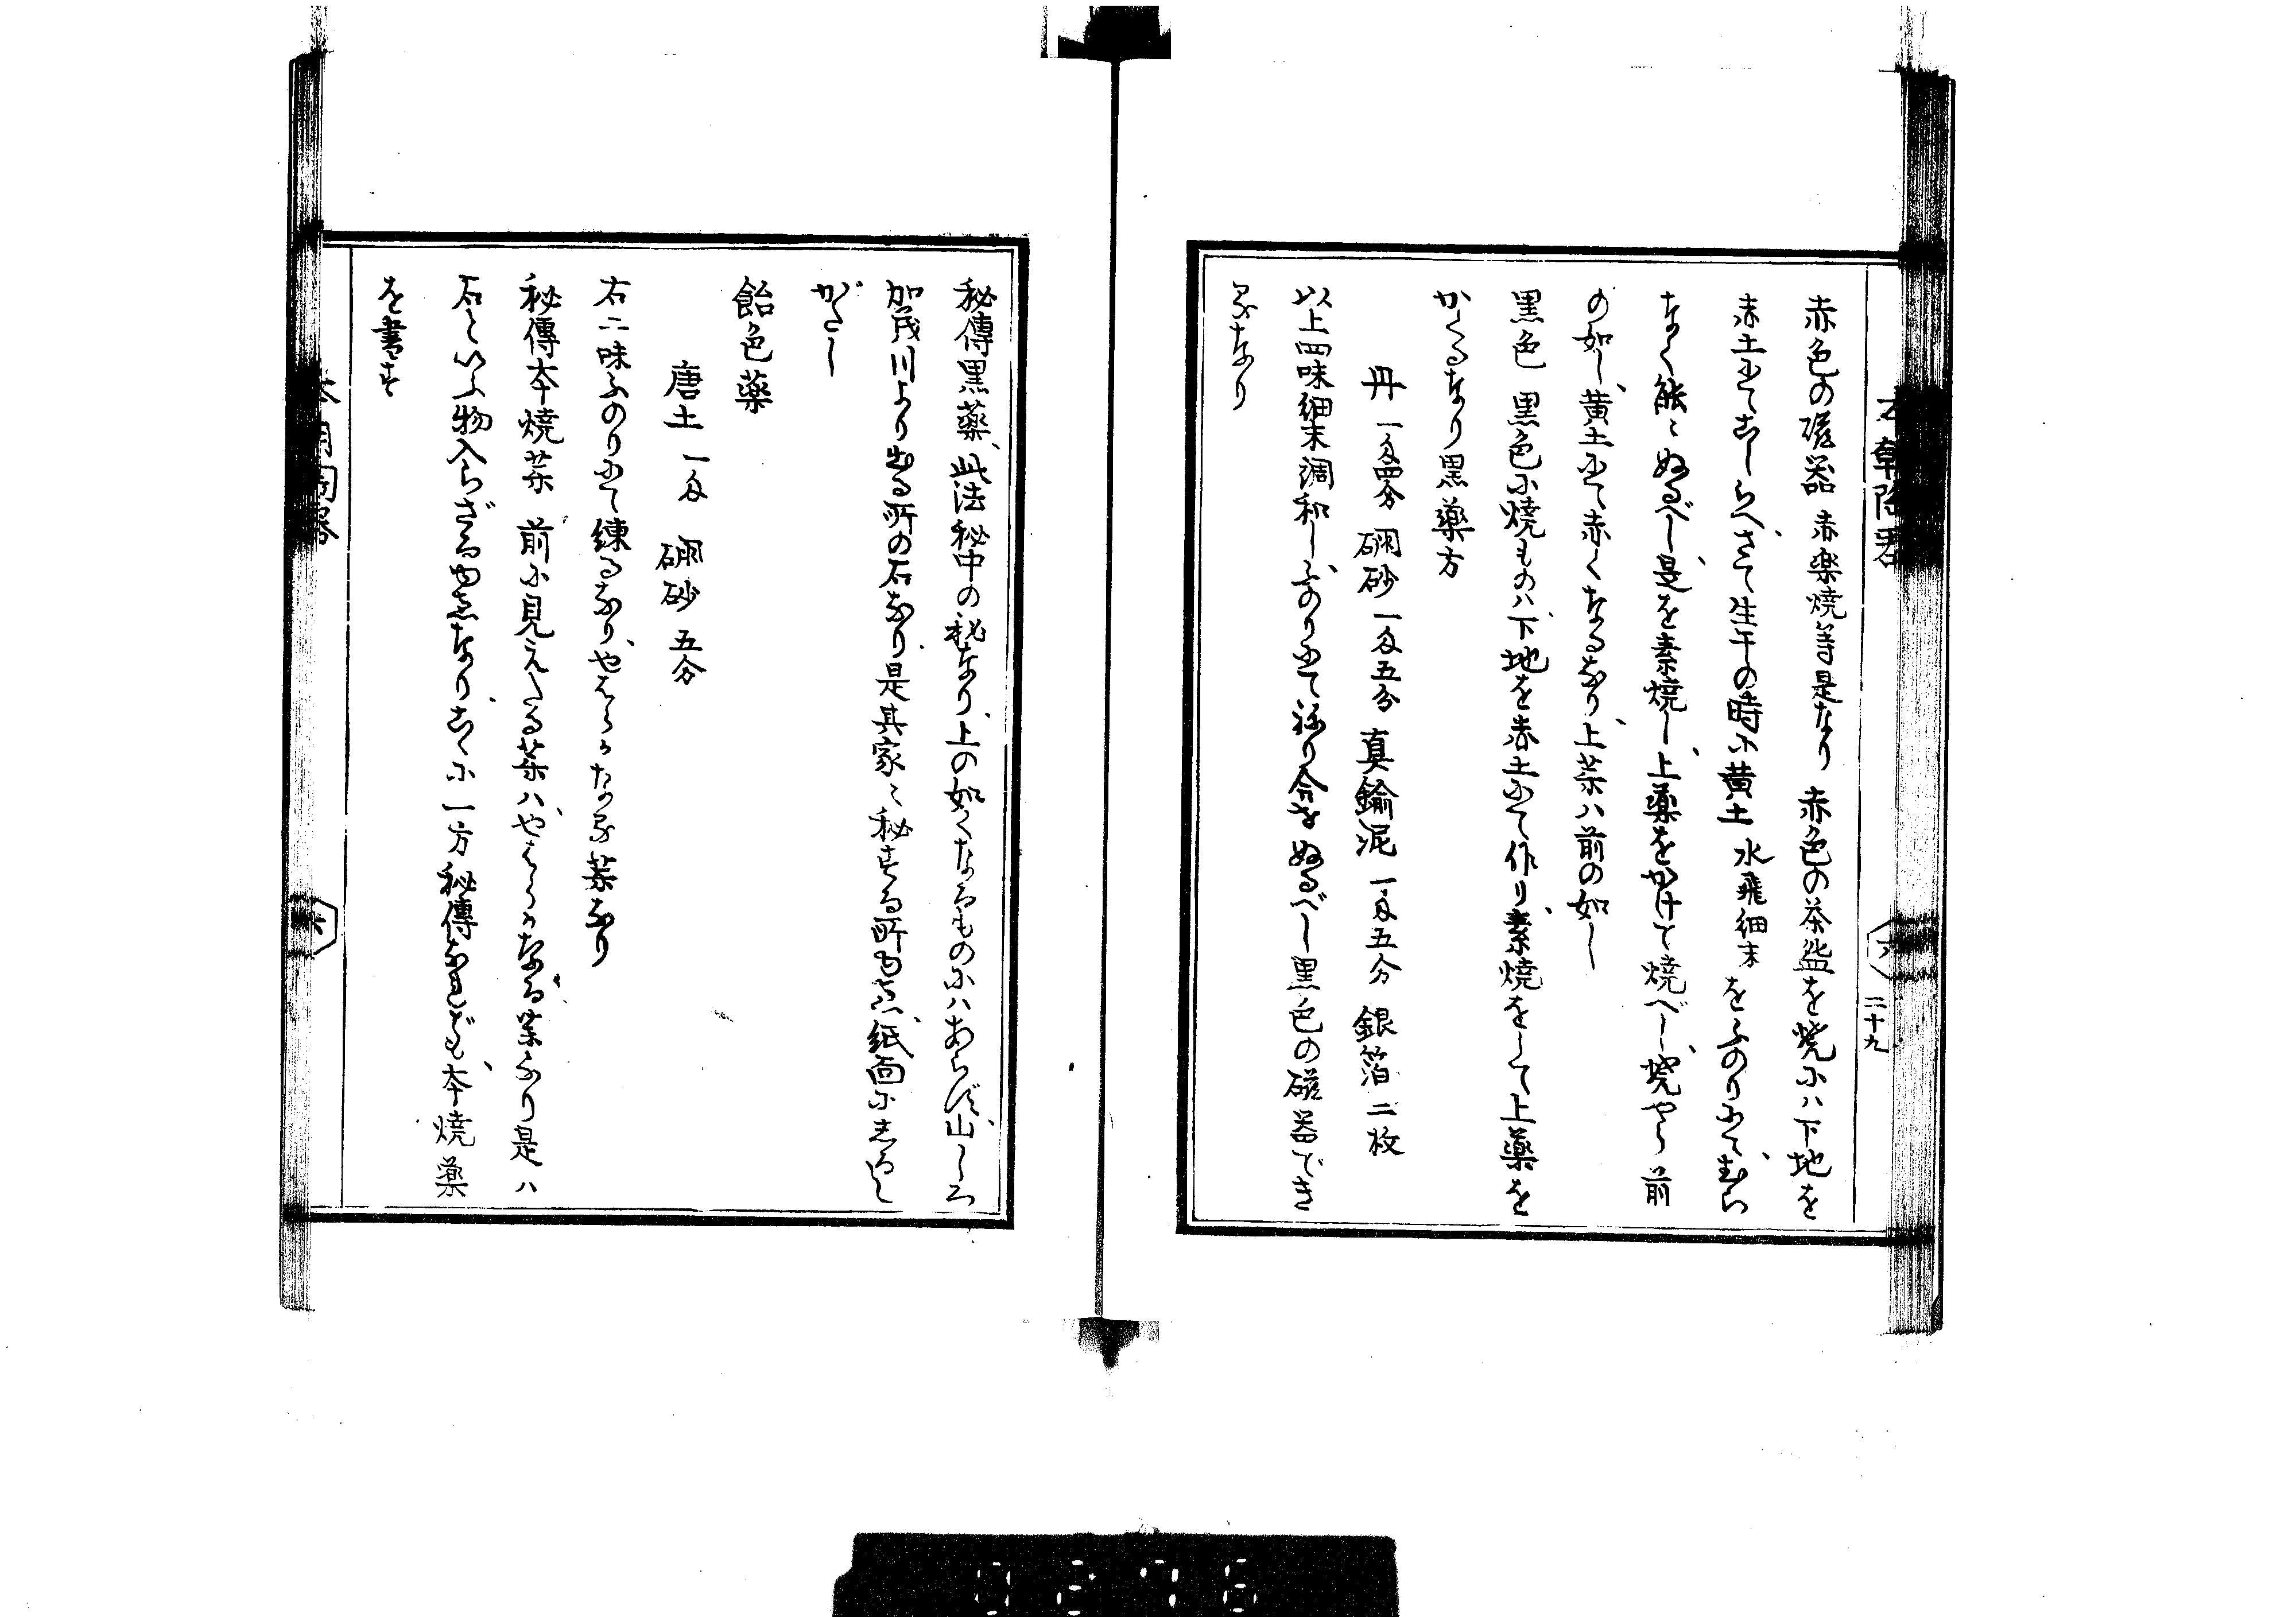 赤色の磁器 赤楽焼等是なり 赤色の茶盌を焼にハ下地を
赤土にてこしらへ、さて生干の時に黄土 水飛細末 をふのりにて、むら
なく能〻ぬるべし、是を素焼し、上薬をかけて焼べし、焼やう前
の如し、黄土にて赤くなるなり、上薬ハ前の如し
黒色 黒色に焼ものハ、下地を赤土にて作り、素焼をして上薬を
かくるなり黒薬方
丹 一匁四分 硼砂 一匁五分 真鍮泥 一匁五分 銀箔 二枚
以上四味細末調和し、ふのりにて祢り合せぬるべし黒色の磁器でき
るなり
秘傳黒薬、此法秘中の秘なり、上の如くなるものにハあらず、山しろ
加茂川より出る所の石なり、是其家〻秘する所ゆゑ、紙面にしるし
がたし
飴色薬
唐土 一匁 硼砂 五分
右二味ふのりにて練るなり、やはらかなる薬なり
秘傳本焼薬 前に見えたる薬ハ、やはらかなる薬なり是ハ
石といふ物入らざるゆゑなり、こゝに一方秘傳なれども、本焼薬
を書す
本朝陶器
六
二十九